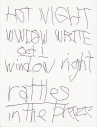 HOT NIGHT
WINDOW WRITE
out!
window right
rattles
in the